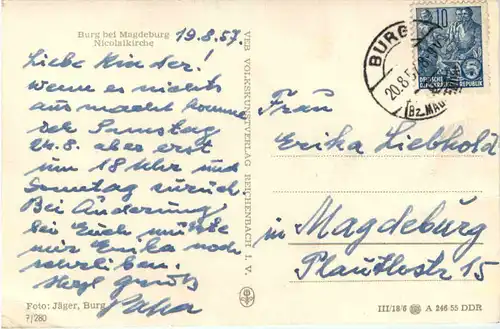 Burg bei Magdeburg
Nicolaikirche
19.8.57.
Liebe Kinder!
wenn es nichts
ausmacht komme
ich Samstag
24.8. aber erst
um 18 Uhr und
Sonntag zurück.
Bei Änderung
bei Euch müßte
mir Erika noch
schreiben.
Herzl Gruß
Papa
Foto: Jäger, Burg
7/280
VEB VOLKSKUNSTVERLAG REICHENBACH I. V.
BURG
20.8.57
(Bz. MAGDEBURG)
10
5
DEUTSCHE
DEMOKRATISCHE REPUBLIK
Frau
Erika Liebhold
in Magdeburg
Plauthstr 15
III/18/6 A 246 55 DDR